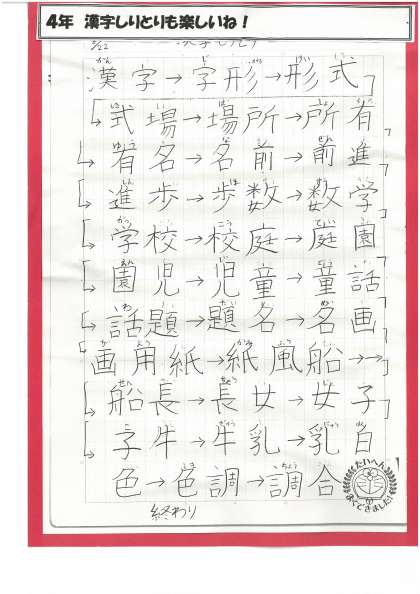 4年 漢字しりとりも楽しいね！
漢字→字形→形式
式場→場所→所有
有名→名前→前進
進歩→歩数→数学
学校→校庭→庭園
園児→児童→童話
話題→題名→名画
画用紙→紙風船→
船長→長女→女子
子牛→牛乳→乳白
色→色調→調合
終わり
たいへん
よくできました!